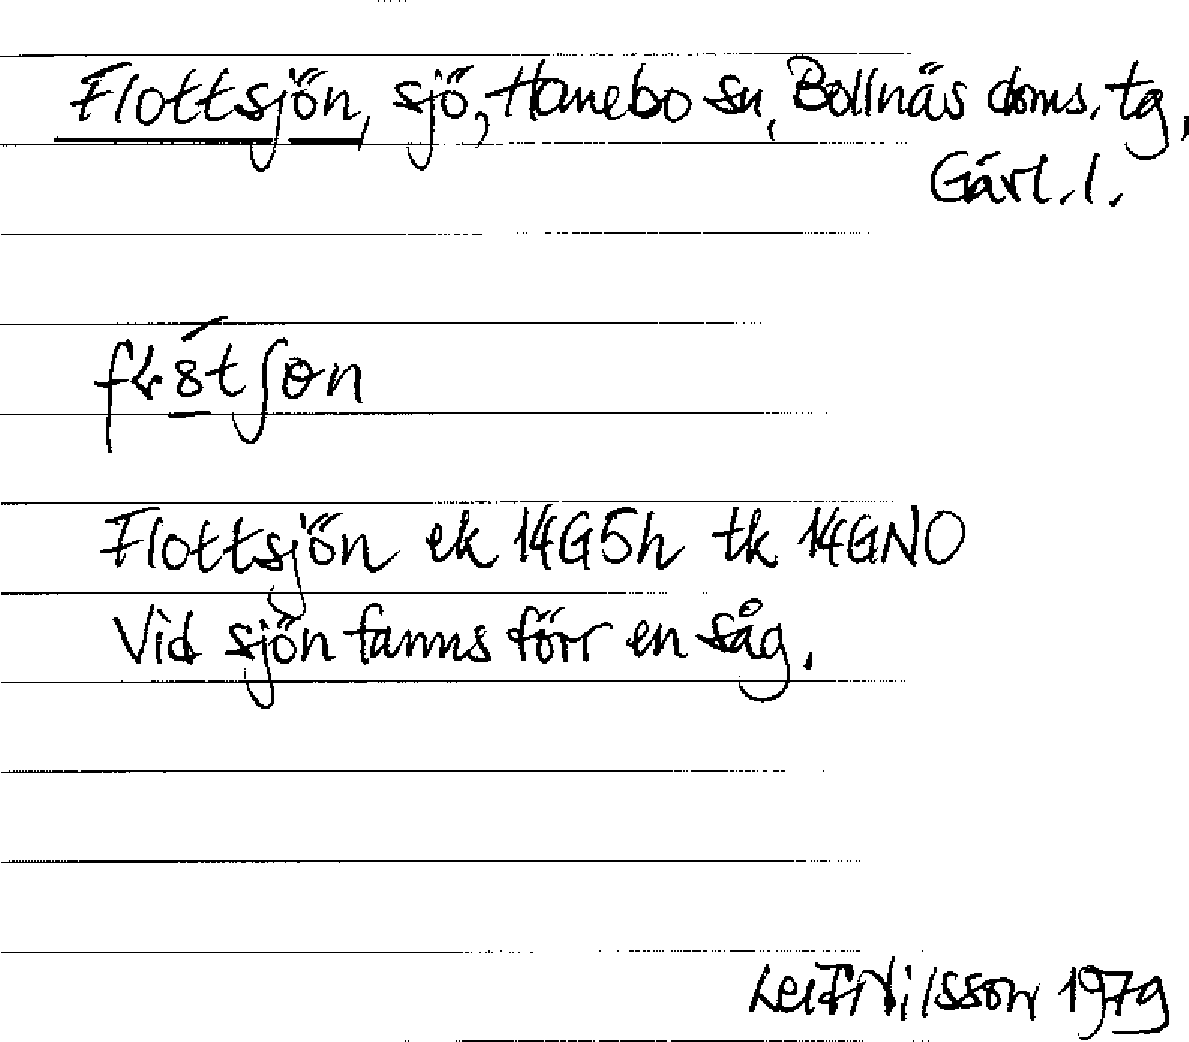 Flottsjön, sjö, Hanebo sn, Bollnäs doms. tg,
Gävl. l.
Flottsjön ek 14G5h tk 14GNO
Vid sjön fanns förr en såg.
Leif Nilsson 1979